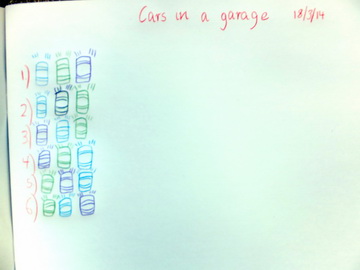 Cars in a garage 18/3/14
1)
2)
3)
4)
5)
6)